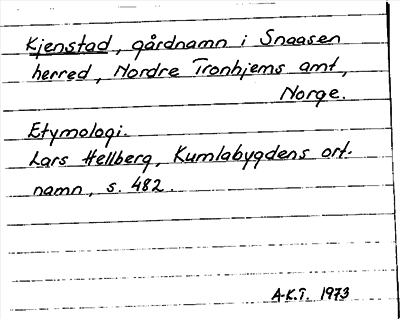 Kjenstad, gårdnamn i Snaasen
herred, Nordre Tronhjems amt,
Norge.
Etymologi.
Lars Hellberg, Kumlabygdens ort-
namn, s. 482.
A-K.T. 1973